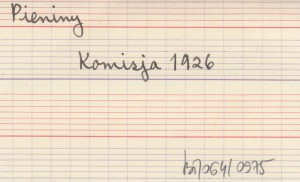 Pieniny
Komisja 1926
064/0975